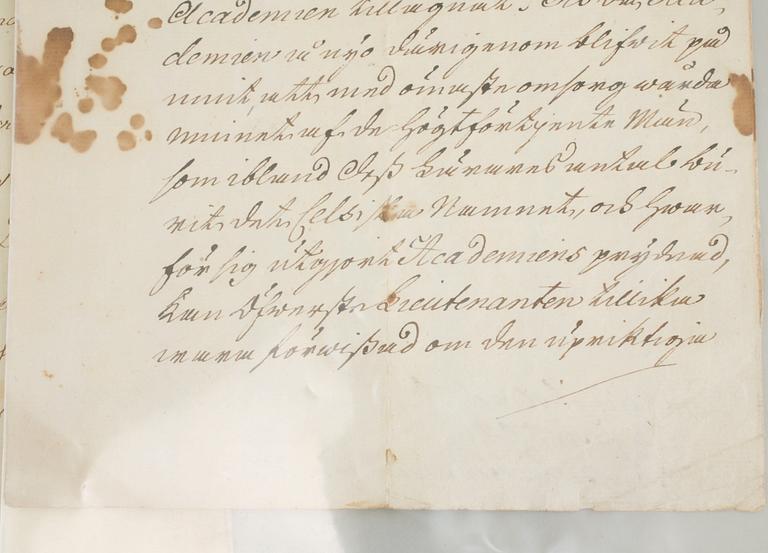 Academien tillägnat. Som Aca-
demien å nyo därigenom blifwit på
mint, att med ömaste omsorg wårda
minnet af de högtförtjente Män,
som ibland dess Lärares antal bu-
rit det Celsiska Namnet, och hwar,
för sig utgjort Academiens prydnad,
kan Öfwerste Lieutenanten tillika
wara förwissad om den upriktiga